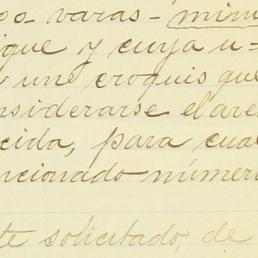 varas - 
y cuya u-
une croquis que
considerarse el are
cida, para cual
ncionado númer
te solicitado, de